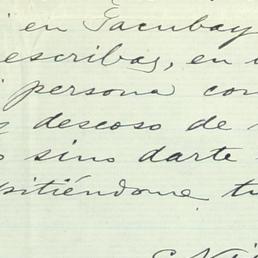 en Tacubay
escribas, en
persona con
deseoso de
sino darte
pitiéndome tu